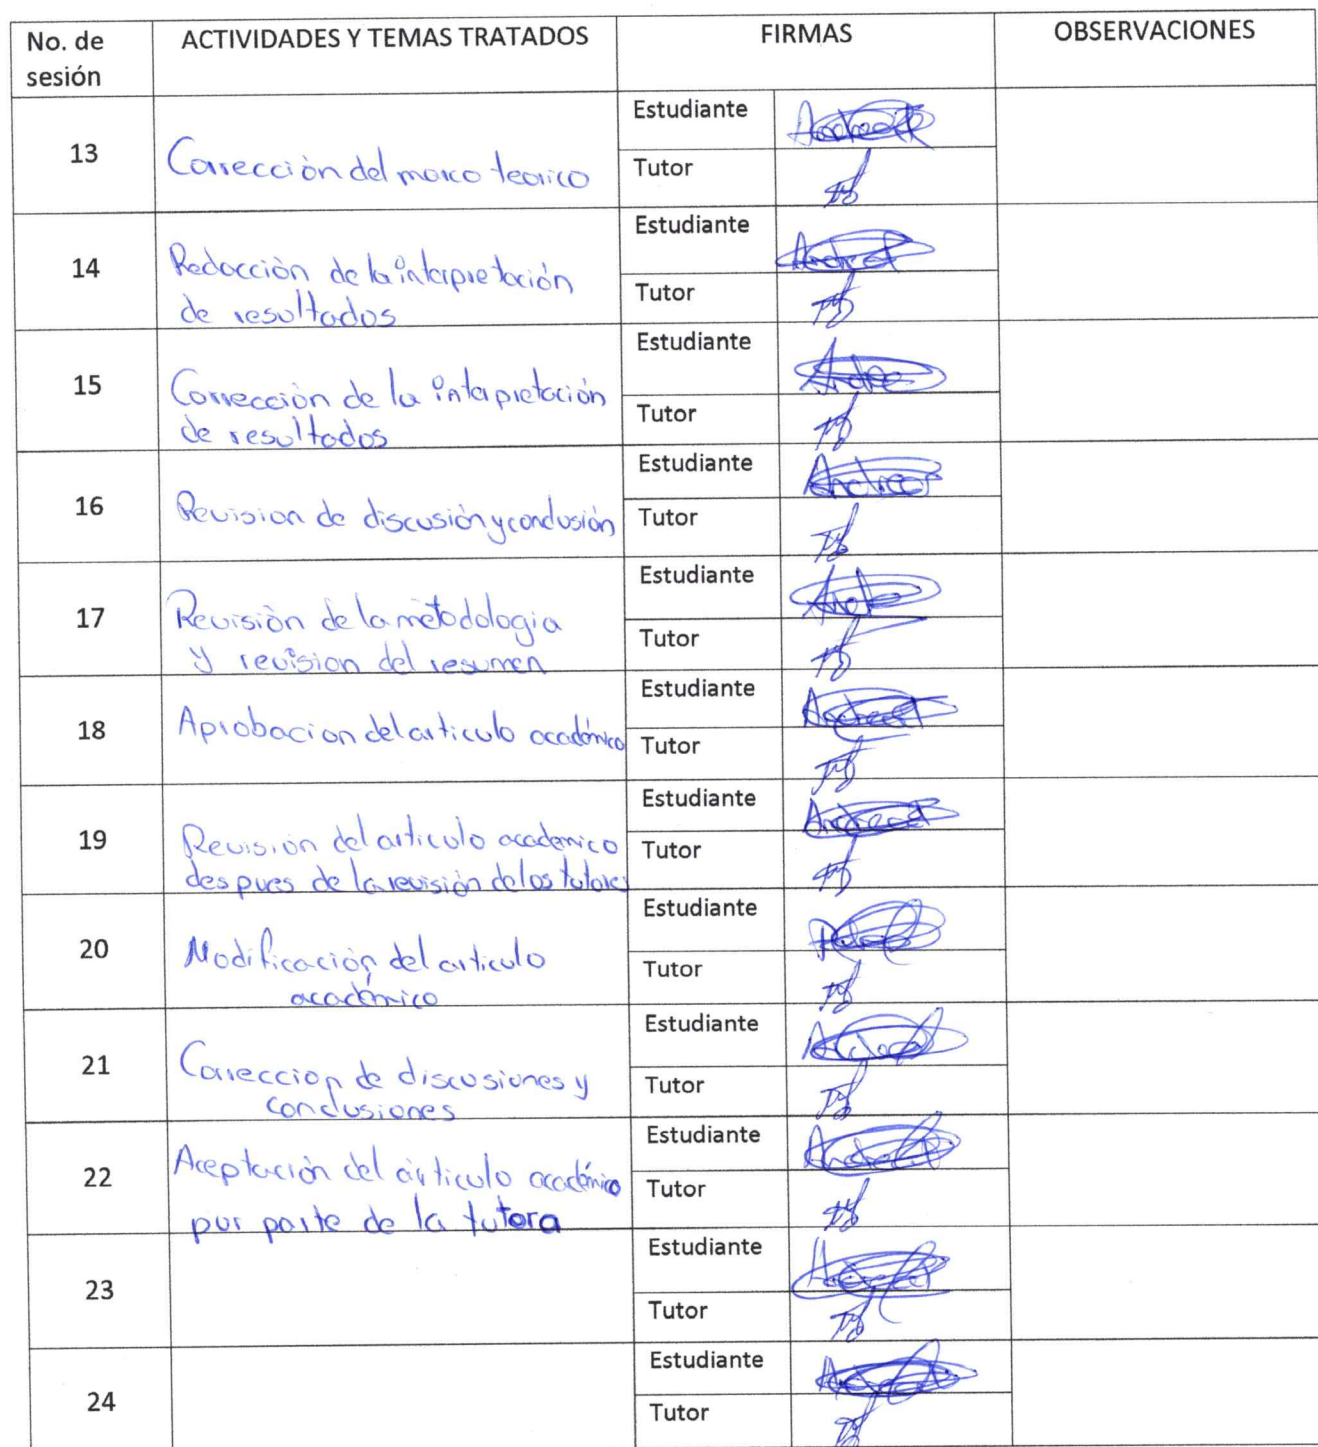 No. de sesión ACTIVIDADES Y TEMAS TRATADOS FIRMAS OBSERVACIONES
Estudiante
13 Corrección del marco teorico
Tutor
Estudiante
14 Redacción de la interpretación
de resultados
Tutor
Estudiante
15 Corrección de la interpretación
de resultados
Tutor
Estudiante
16 Revision de discusión y conclusión
Tutor
Estudiante
17 Revisión de la metodologia
y revision del resumen
Tutor
Estudiante
18 Aprobacion del articulo académico
Tutor
Estudiante
19 Revision del articulo academico
despues de la revisión de los tutores
Tutor
Estudiante
20 Modificación del articulo
académico
Tutor
Estudiante
21 Correccion de discusiones y
conclusiones
Tutor
Estudiante
22 Aceptación del articulo académico
por parte de la tutora
Tutor
Estudiante
23
Tutor
Estudiante
24
Tutor